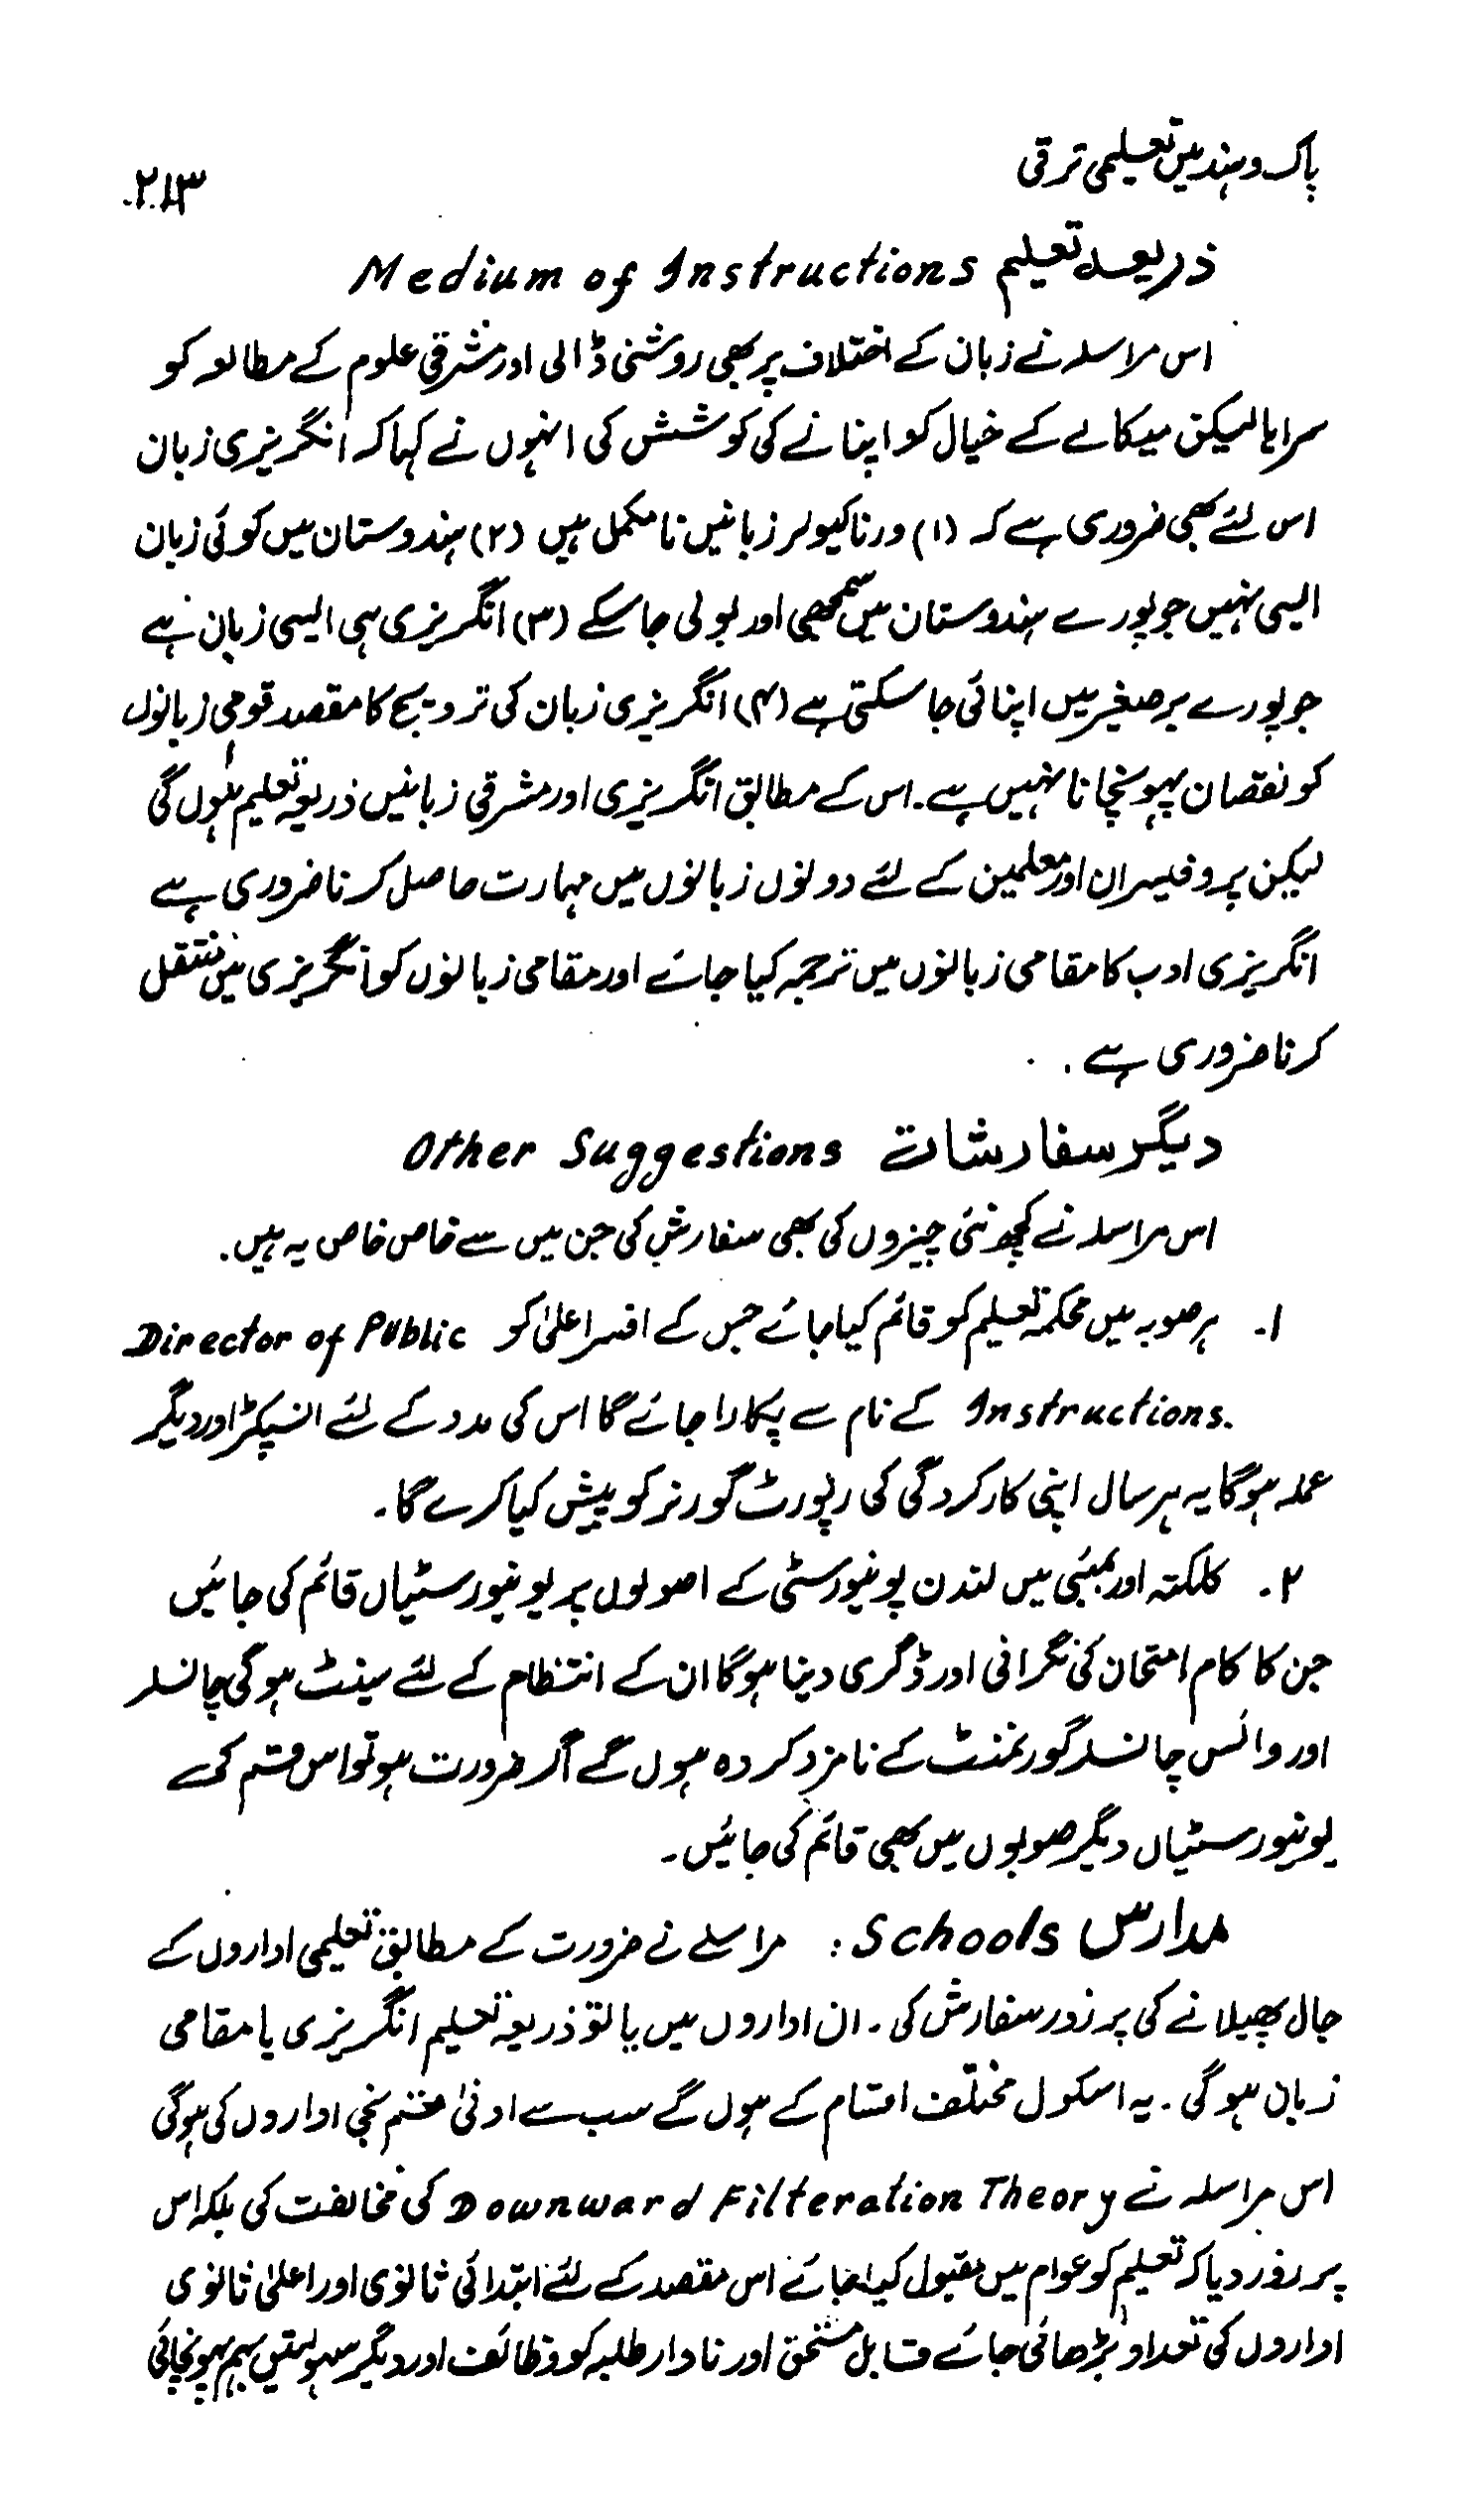 پاک و ہند میں تعلیمی ترقی
۲۱۳
ذریعہ تعلیم Medium of Instructions
اس مراسلہ نے زبان کے اختلاف پر بھی روشنی ڈالی اور مشرقی علوم کے مطالعہ کو
سراہا لیکن میکالے کے خیال کو اپنانے کی کوشش کی انہوں نے کہا کہ انگریزی زبان
اس لئے بھی ضروری ہے کہ (۱) ورناکیولر زبانیں نامکمل ہیں (۲) ہندوستان میں کوئی زبان
ایسی نہیں جو پورے ہندوستان میں سمجھی اور بولی جا سکے (۳) انگریزی ہی ایسی زبان ہے
جو پورے برصغیر میں اپنائی جا سکتی ہے (۴) انگریزی زبان کی ترویج کا مقصد قومی زبانوں
کو نقصان پہونچانا نہیں ہے۔ اس کے مطابق انگریزی اور مشرقی زبانیں ذریعہ تعلیم ہوں گی
لیکن پروفیسران اور معلمین کے لئے دونوں زبانوں میں مہارت حاصل کرنا ضروری ہے
انگریزی ادب کا مقامی زبانوں میں ترجمہ کیا جائے اور مقامی زبانوں کو انگریزی میں منتقل
کرنا ضروری ہے۔
دیگر سفارشات Other Suggestions
اس مراسلہ نے کچھ نئی چیزوں کی بھی سفارش کی جن میں سے خاص خاص یہ ہیں۔
۱۔ ہر صوبہ میں محکمہ تعلیم کو قائم کیا جائے جس کے افسر اعلیٰ کو Director of Public
Instructions. کے نام سے پکارا جائے گا اس کی مدد کے لئے انسپکٹر اور دیگر
عملہ ہوگا یہ ہر سال اپنی کارکردگی کی رپورٹ گورنر کو پیش کیا کرے گا۔
۲۔ کلکتہ اور بمبئی میں لندن یونیورسٹی کے اصولوں پر یونیورسٹیاں قائم کی جائیں
جن کا کام امتحان کی نگرانی اور ڈگری دینا ہوگا ان کے انتظام کے لئے سینٹ ہوگی چانسلر
اور وائس چانسلر گورنمنٹ کے نامزد کردہ ہوں گے اگر ضرورت ہو تو اس قسم کی
یونیورسٹیاں دیگر صوبوں میں بھی قائم کی جائیں۔
مدارس Schools: مراسلے نے ضرورت کے مطابق تعلیمی اداروں کے
جال پھیلانے کی پر زور سفارش کی۔ ان اداروں میں یا تو ذریعہ تعلیم انگریزی یا مقامی
زبان ہوگی۔ یہ اسکول مختلف اقسام کے ہوں گے سب سے ادنیٰ قسم نجی اداروں کی ہوگی
اس مراسلہ نے Downward Filteration Theory کی مخالفت کی بلکہ اس
پر زور دیا کہ تعلیم کو عوام میں مقبول کیا جائے اس مقصد کے لئے ابتدائی ثانوی اور اعلیٰ ثانوی
اداروں کی تعداد بڑھائی جائے قابل مستحق اور نادار طلبہ کو وظائف اور دیگر سہولتیں بہم پہونچائی